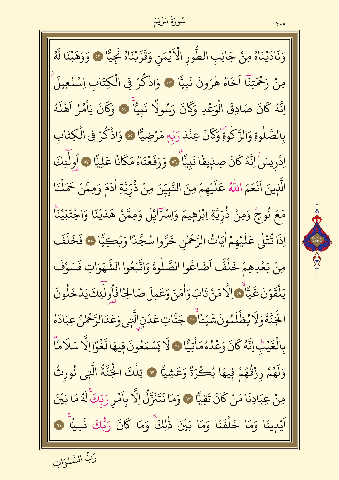 سُورَةُ مَرْيَمَ
وَنَادَيْنَاهُ مِنْ جَانِبِ الطُّورِ الْأَيْمَنِ وَقَرَّبْنَاهُ نَجِيًّا ۞ وَوَهَبْنَا لَهُ
مِنْ رَحْمَتِنَا أَخَاهُ هَرُونَ نَبِيًّا ۞ وَاذْكُرْ فِي الْكِتَابِ إِسْمَعِيلَ
إِنَّهُ كَانَ صَادِقَ الْوَعْدِ وَكَانَ رَسُولًا نَبِيًّا ۞ وَكَانَ يَأْمُرُ أَهْلَهُ
بِالصَّلٰوةِ وَالزَّكٰوةِ وَكَانَ عِنْدَ رَبِّهِ مَرْضِيًّا ۞ وَاذْكُرْ فِي الْكِتَابِ
إِدْرِيسَ إِنَّهُ كَانَ صِدِّيقًا نَبِيًّا ۞ وَرَفَعْنَاهُ مَكَانًا عَلِيًّا ۞ أُولٰئِكَ
الَّذِينَ أَنْعَمَ اللهُ عَلَيْهِمْ مِنَ النَّبِيِّنَ مِنْ ذُرِّيَّةِ اٰدَمَ وَمِمَّنْ حَمَلْنَا
مَعَ نُوحٍ وَمِنْ ذُرِّيَّةِ إِبْرٰهِيمَ وَإِسْرَائِلَ وَمِمَّنْ هَدَيْنَا وَاجْتَبَيْنَا
إِذَا تُتْلٰى عَلَيْهِمْ اٰيَاتُ الرَّحْمٰنِ خَرُّوا سُجَّدًا وَبُكِيًّا ۞ فَخَلَفَ
مِنْ بَعْدِهِمْ خَلْفٌ أَضَاعُوا الصَّلٰوةَ وَاتَّبَعُوا الشَّهَوَاتِ فَسَوْفَ
يَلْقَوْنَ غَيًّا ۞ إِلَّا مَنْ تَابَ وَاٰمَنَ وَعَمِلَ صَالِحًا فَأُولٰئِكَ يَدْخُلُونَ
الْجَنَّةَ وَلَا يُظْلَمُونَ شَيْئًا ۞ جَنَّاتِ عَدْنٍ الَّتِي وَعَدَ الرَّحْمٰنُ عِبَادَهُ
بِالْغَيْبِ إِنَّهُ كَانَ وَعْدُهُ مَأْتِيًّا ۞ لَا يَسْمَعُونَ فِيهَا لَغْوًا إِلَّا سَلَامًا
وَلَهُمْ رِزْقُهُمْ فِيهَا بُكْرَةً وَعَشِيًّا ۞ تِلْكَ الْجَنَّةُ الَّتِي نُورِثُ
مِنْ عِبَادِنَا مَنْ كَانَ تَقِيًّا ۞ وَمَا نَتَنَزَّلُ إِلَّا بِأَمْرِ رَبِّكَ لَهُ مَا بَيْنَ
أَيْدِينَا وَمَا خَلْفَنَا وَمَا بَيْنَ ذٰلِكَ وَمَا كَانَ رَبُّكَ نَسِيًّا ۞
رَبُّ السَّمٰوَاتِ